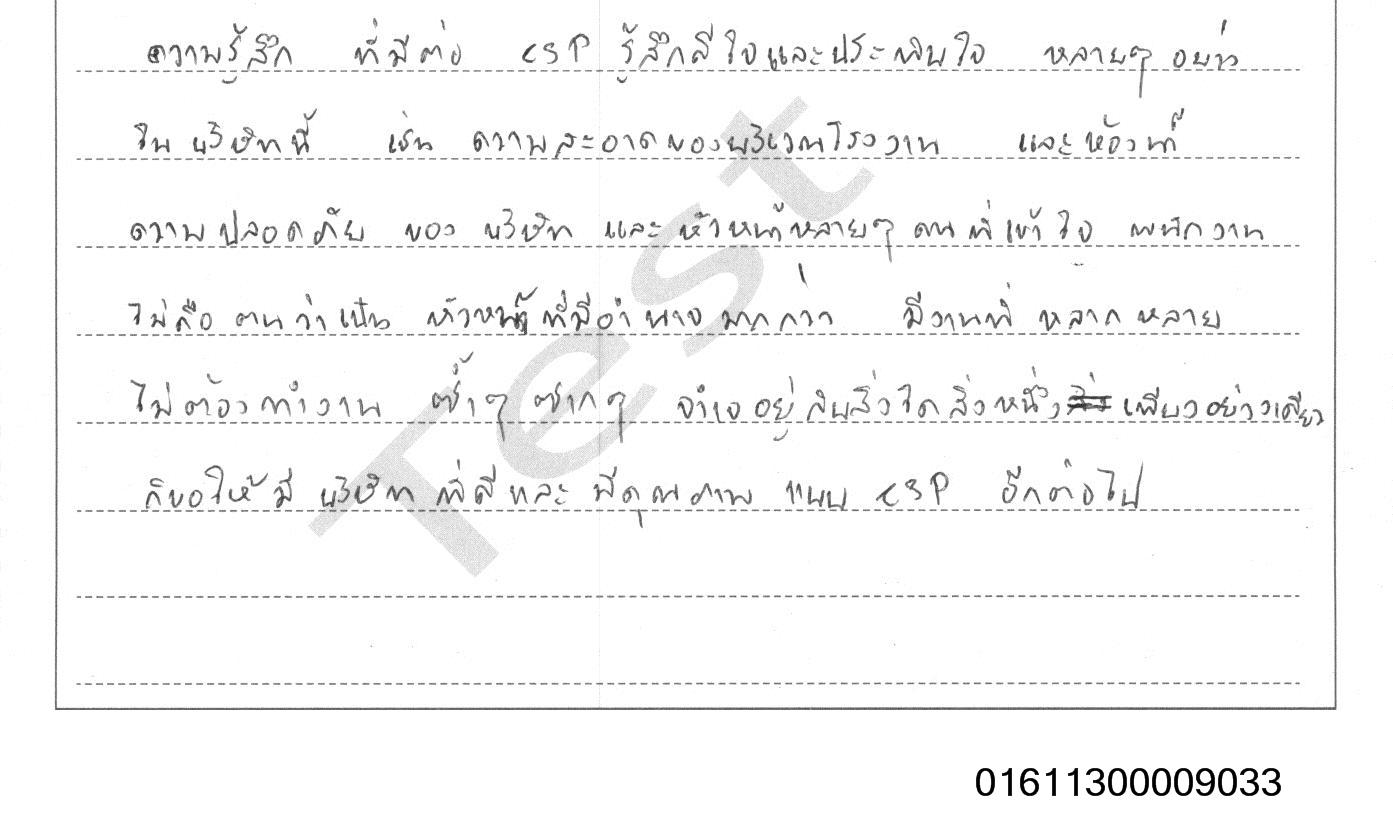 ความรู้สึก ที่มีต่อ CSP รู้สึกดีใจและประทับใจ หลายๆ อย่าง
ในบริษัทนี้ เช่น ความสะอาดของบริเวณโรงงาน และห้องน้ำ
ความปลอดภัย ของ บริษัท และหัวหน้าหลายๆ คนที่เข้าใจ พนักงาน
ไม่ถือ ตนว่าเป็น หัวหน้าที่มีอำนาจมากกว่า มีงานที่ หลากหลาย
ไม่ต้องทำงาน ซ้ำๆ ซากๆ จำเจอยู่กับสิ่งใดสิ่งหนึ่ง เพียงอย่างเดียว
ก็ขอให้มี บริษัท ที่ดีและ มีคุณภาพ แบบ CSP อีกต่อไป
Test
01611300009033